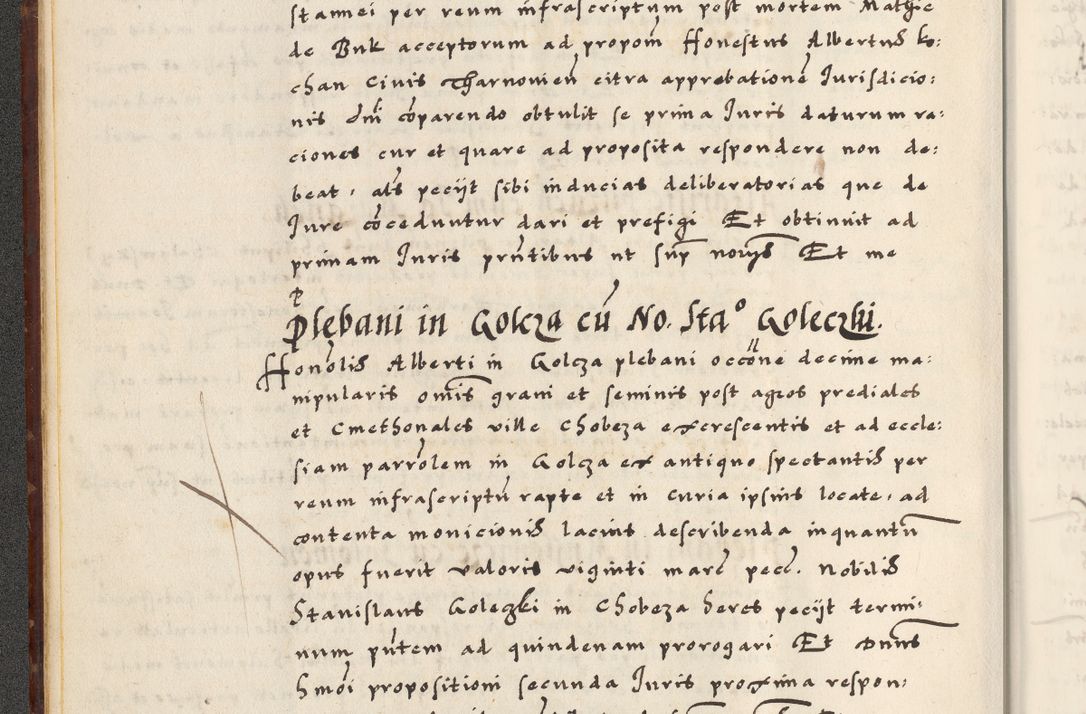 stamei per reum infrascriptum post mortem Mathie
de Buk acceptorum ad propom̃ Honestus Albertus ko:
chan Civis Tharnovien̄ citra approbationē Iurisdicio:
nis dn̄i cōparendo obtulit se prima Iuris daturum ra:
ciones cur et quare ad proposita respondere non de:
beat, als peciit sibi inducias deliberatorias que de
Iure cōceduntur dari et prefigi Et obtinuit ad
primam Iuris prn̄tibus ut sup̄ Et me
Plebani in Golcza cū No. Sta° Goleczki.
Honōlis Alberti in Golcza plebani occōne decime ma:
nipularis om̄is grani et seminis post agros prediales
et Cmethonales ville Chobeza excrescentis et ad eccle:
siam parrōlem in Golcza ex antiquo spectantis per
reum infrascriptū rapte et in curia ipsius locate, ad
contenta monicionis lacius describenda inquantū
opus fuerit valoris viginti marc̄ pecc̄. Nobilis
Stanislaus Goleczki in Chobeza heres peciit termi:
num pn̄tem ad quindenam prorogari Et Dn̄us
Smōi propositioni secunda Iuris proxima respon: